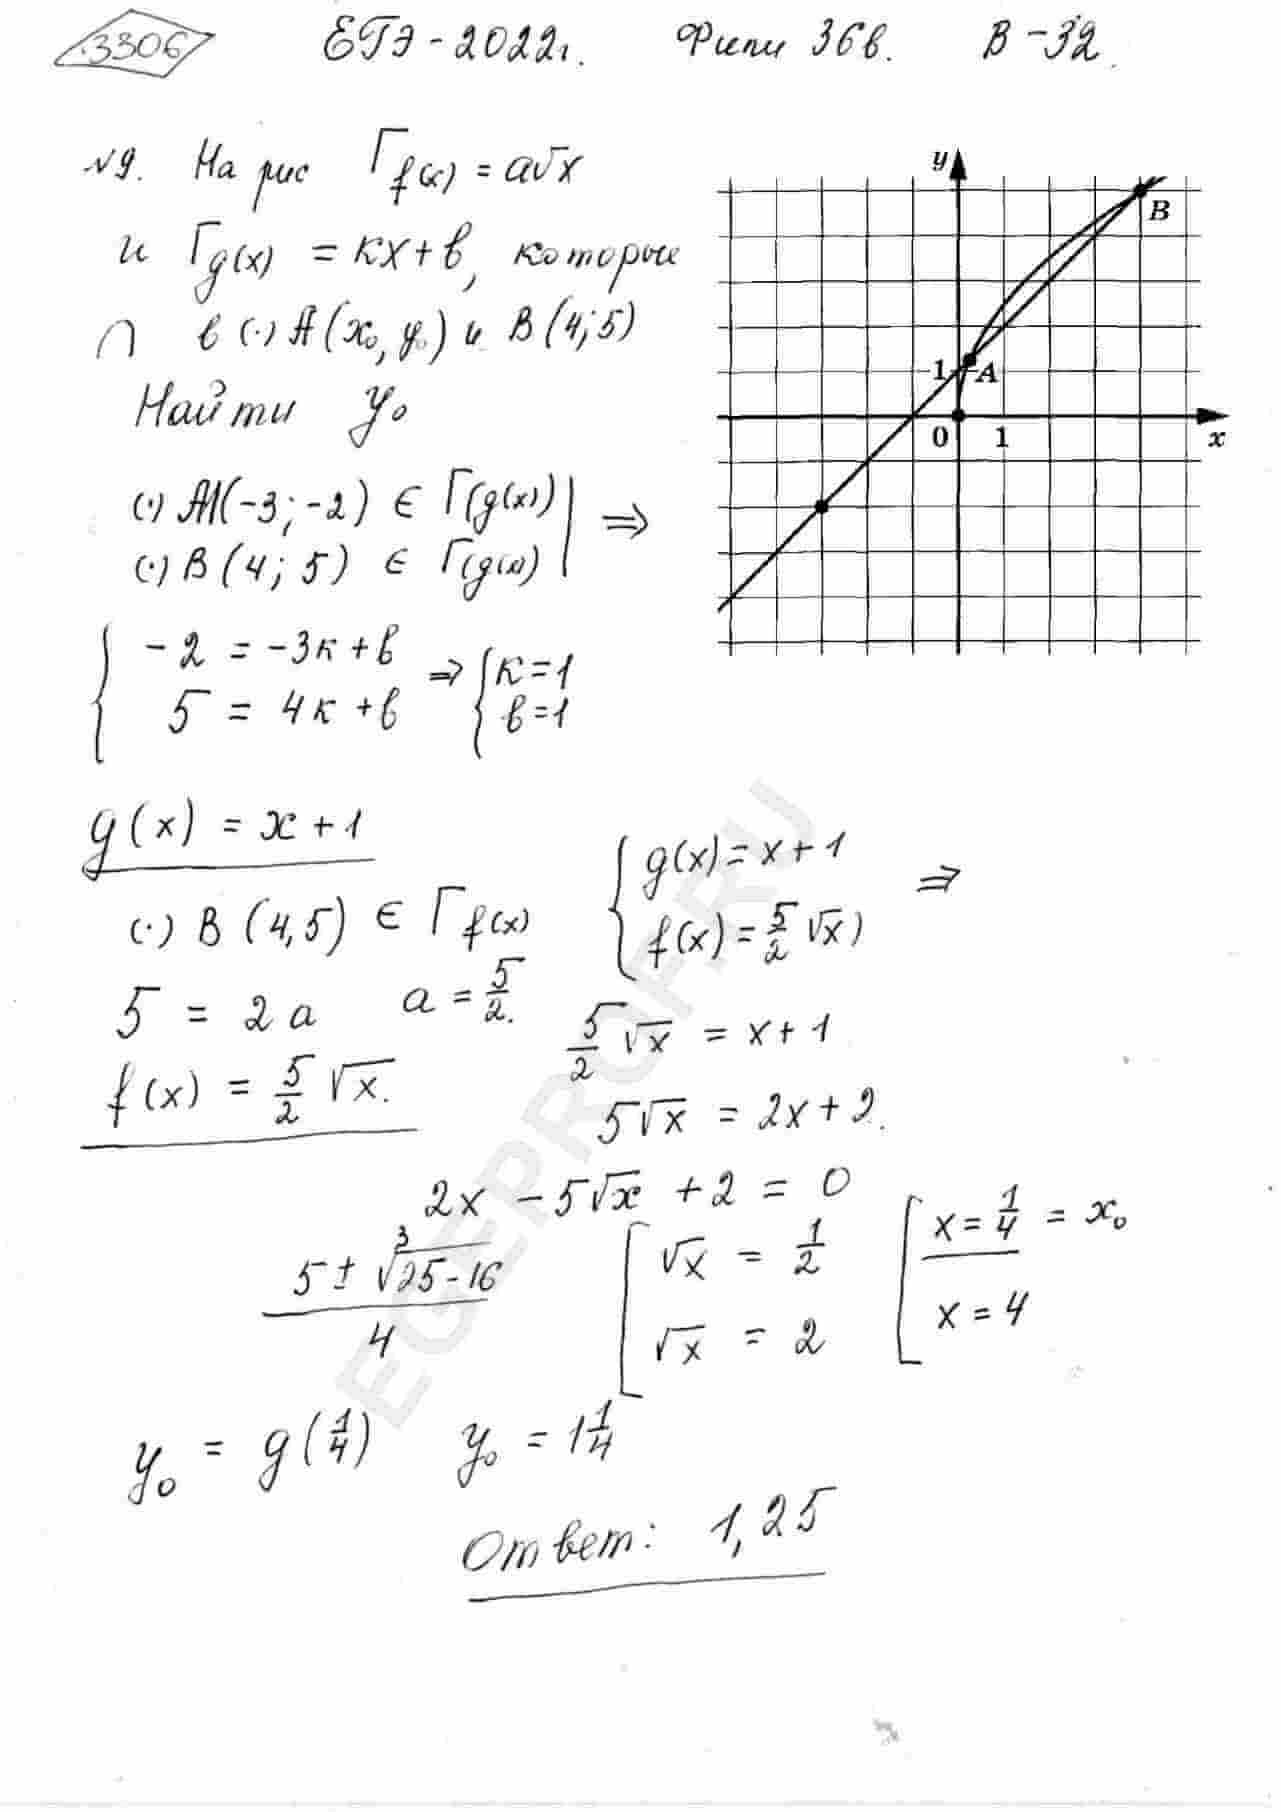 3306 ЕГЭ-2022г. Фипи 36в. В-32.
№9. На рис Γf(x) = a√x
и Γg(x) = кх+в, которые
∩ в (·) A(x₀, y₀) и B(4;5)
Найти y₀
y
B
1
A
0 1
x
(·) M(-3;-2) ∈ Γ(g(x)) | ⇒
(·) B(4;5) ∈ Γ(g(x)) |
{ -2 = -3к+в ⇒ { к=1
5 = 4к+в в=1
g(x) = x+1
(·) B(4,5) ∈ Γf(x)
5 = 2a a = 5/2.
f(x) = 5/2 √x.
{ g(x) = x+1 ⇒
f(x) = 5/2 √x)
5/2 √x = x+1
5√x = 2x+2.
2x - 5√x + 2 = 0
(5 ± √(25-16))/4 3
[ √x = 1/2 [ x = 1/4 = x₀
√x = 2 x = 4
y₀ = g(1/4) y₀ = 1 1/4
Ответ: 1,25
EGEPROF.RU